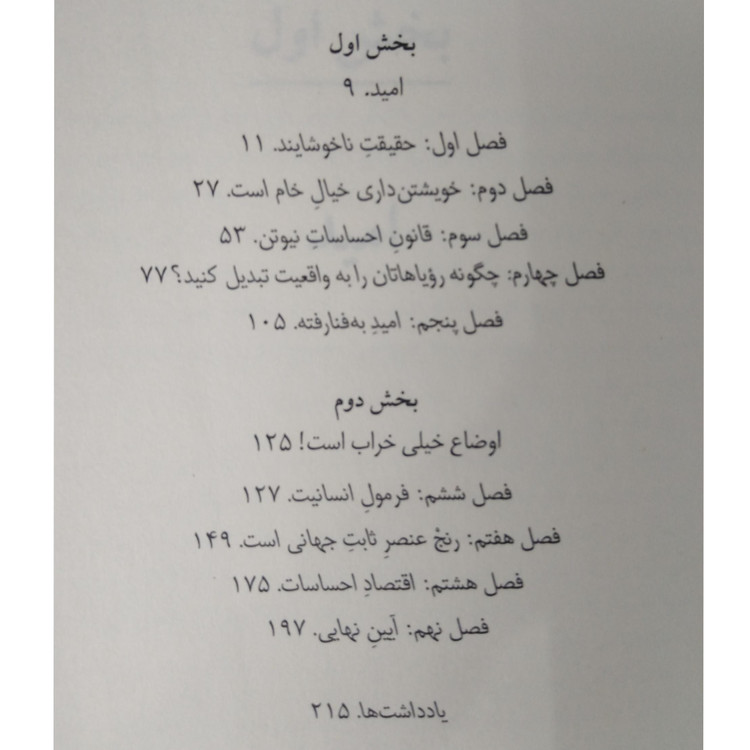 بخش اول
امید. ۹
فصل اول: حقیقتِ ناخوشایند. ۱۱
فصل دوم: خویشتن‌داری خیالِ خام است. ۲۷
فصل سوم: قانونِ احساساتِ نیوتن. ۵۳
فصل چهارم: چگونه رؤیاهاتان را به واقعیت تبدیل کنید؟ ۷۷
فصل پنجم: امیدِ به‌فنارفته. ۱۰۵
بخش دوم
اوضاع خیلی خراب است! ۱۲۵
فصل ششم: فرمولِ انسانیت. ۱۲۷
فصل هفتم: رنجْ عنصرِ ثابتِ جهانی است. ۱۴۹
فصل هشتم: اقتصادِ احساسات. ۱۷۵
فصل نهم: آیینِ نهایی. ۱۹۷
یادداشت‌ها. ۲۱۵